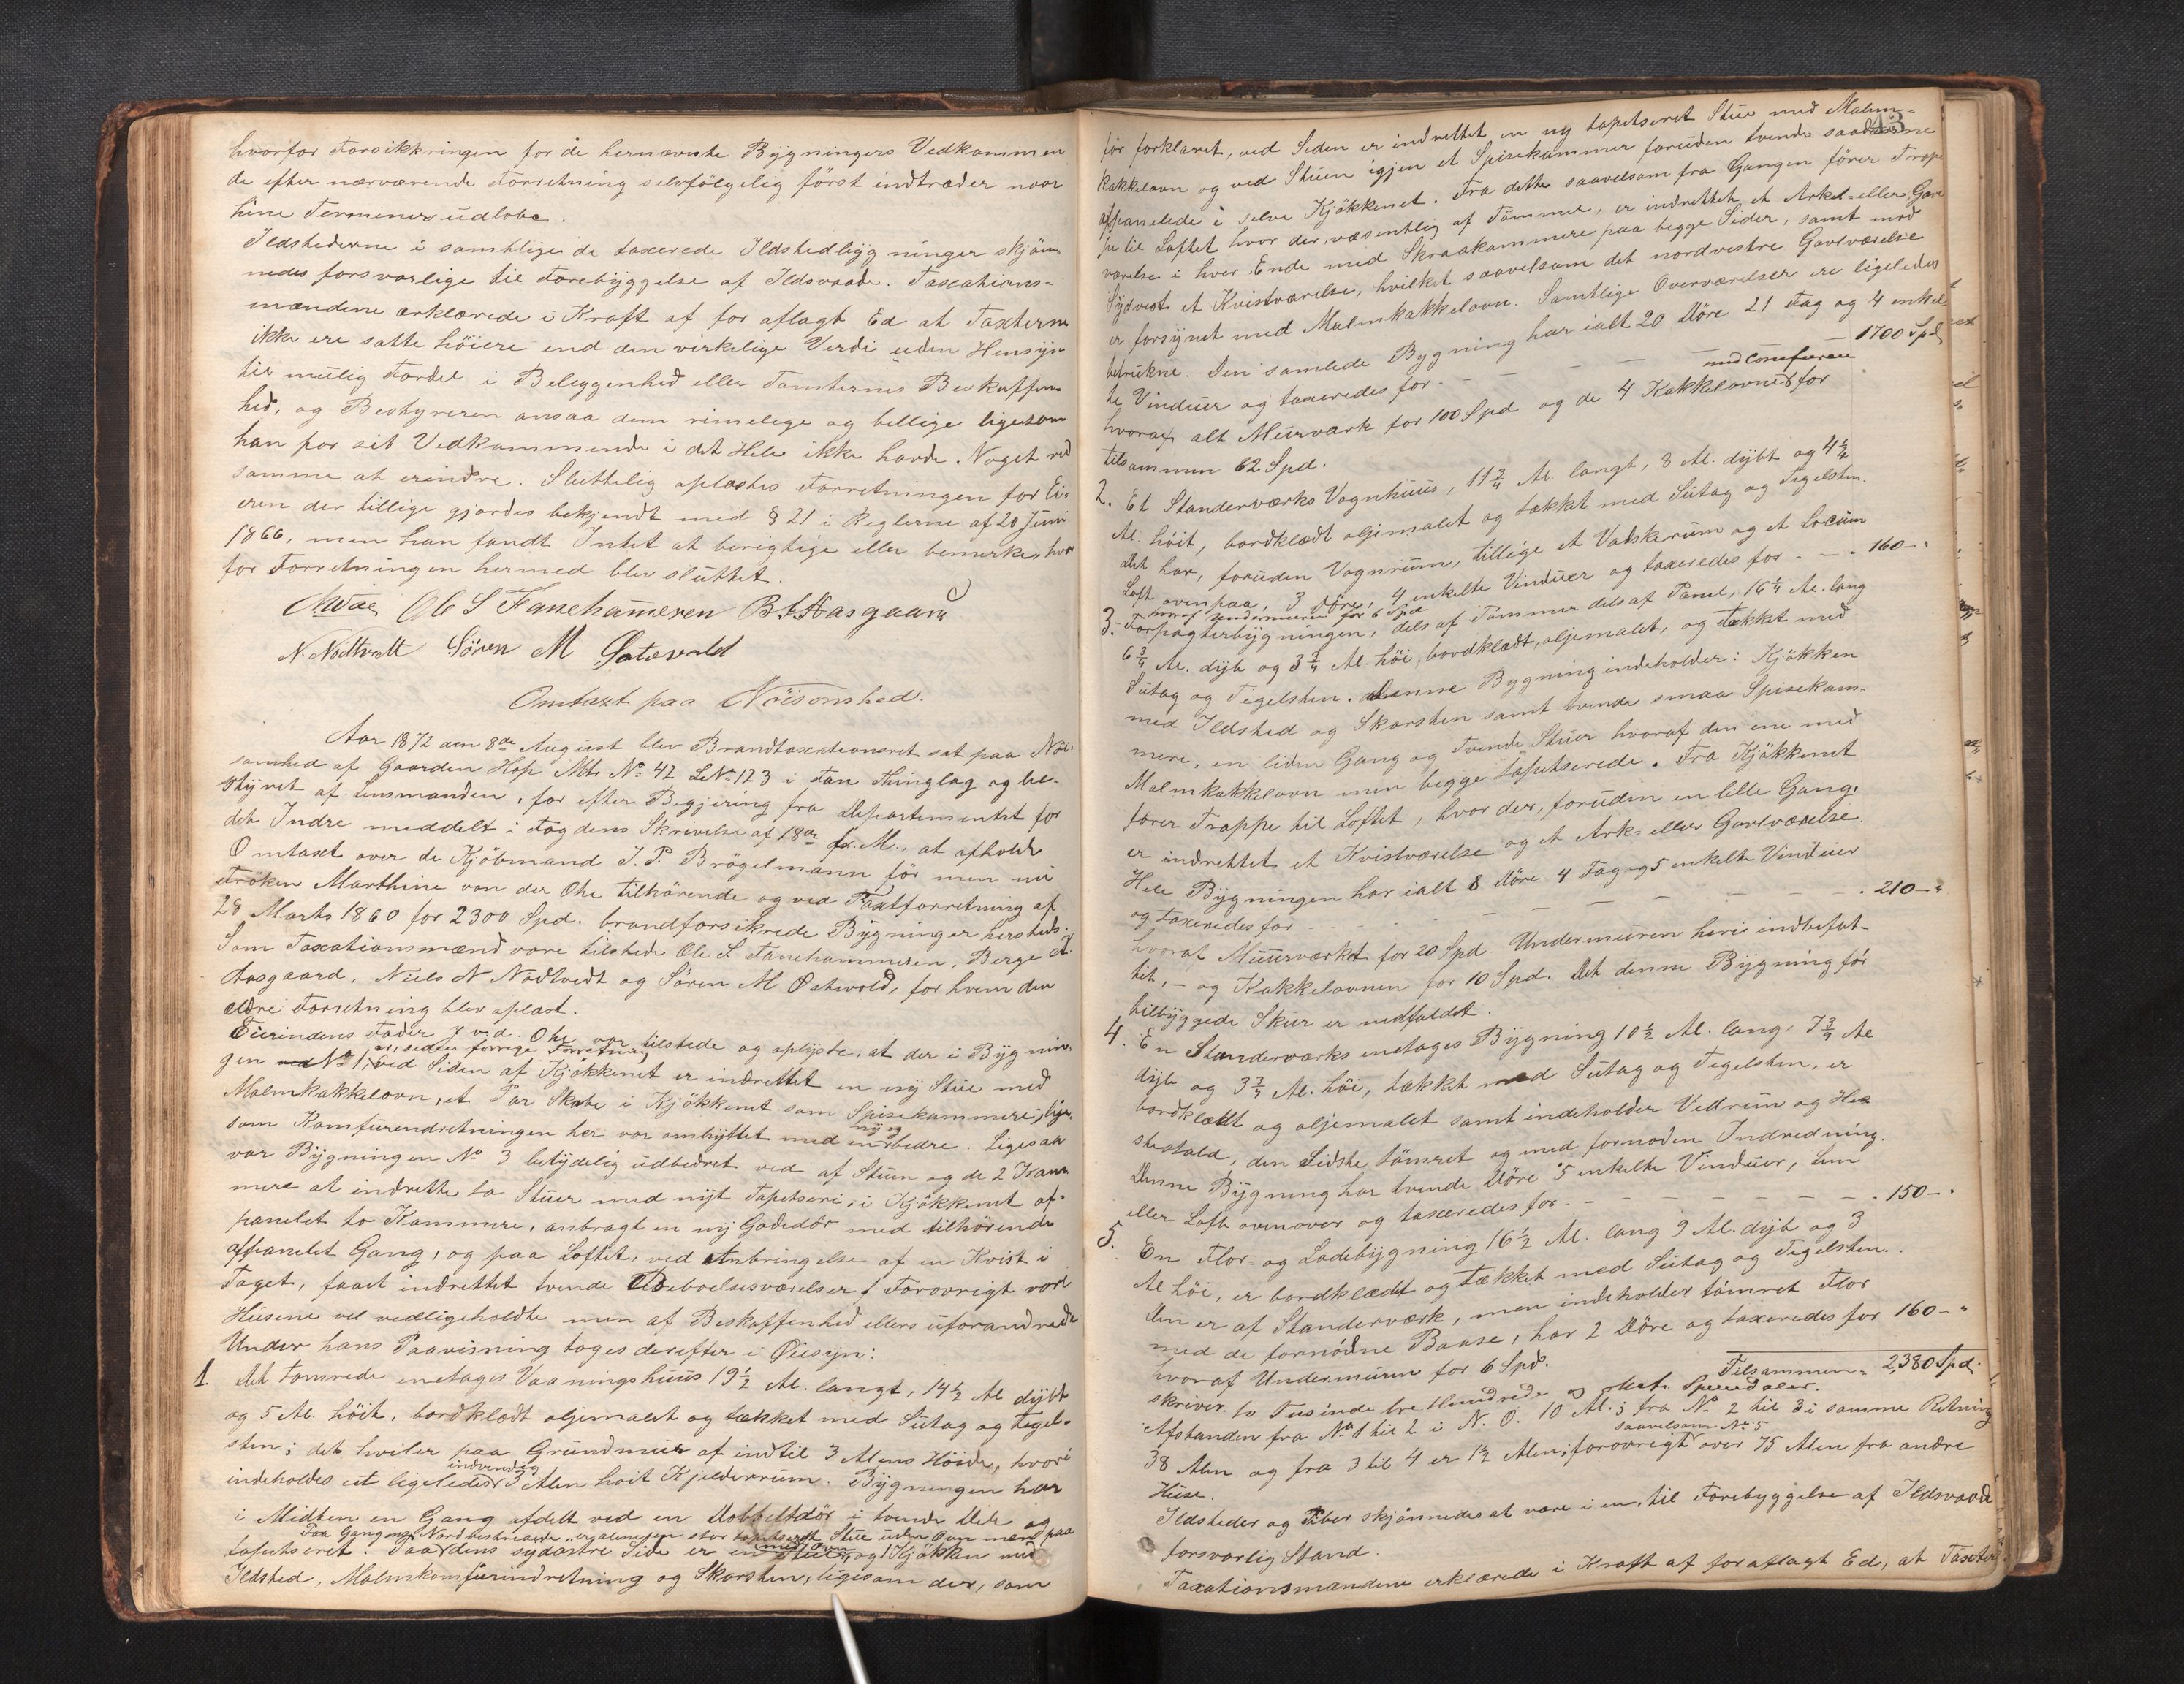 hvorfor Forsikkringen for de hernævnte Bygningers Vedkommen
de efter nærværende Forretning selvfölgelig först indtræder naar
hine Terminer udlöbe.
Ildstederne i samtlige de taxerede Ildstedbygninger skjön-
nedes forsvarlige til Forebyggelse af Ildsvaade. Taxations-
mændene erklærede i Kraft af før aflagt Ed at Taxterne
ikke ere satte höiere end den virkelige Verdi uden Hensyn
til mulig Fordel i Beleggenhed eller Tomternes Beskaffen-
hed, og Bestyreren ansaa dem rimelige og billige ligesom
han for sit Vedkommende i det Hele ikke havde Noget ved
samme at erindre. Sluttelig oplæstes Forretningen for Ei-
eren der tillige gjordes bekjendt med § 21 i Reglerne af 20 Juni
1866, men han fandt Intet at berigtige eller bemerke, hvor
for Forretningen hermed blev sluttet.
Ole S Fanehameren B. Aasgaard
N. Nödtvedt Sören M
Omtaxt paa Nöisomhed.
Aar 1872 den 8de August blev Brandtaxationsret sat paa Nöi-
somhed af Gaarden Hop Mt. No 42 LNo 123 i Fan Thinglag og be-
styret af Lensmanden, for efter Begjering fra Departementet for
det Indre meddelt i Fogdens Skrivelse af 18de f. M. at afholde
Omtaxt over de Kjöbmand J. P. Brögelmann för men nu
Fröken Marthine von der Ohe tilhörende og ved Taxtforretning af
28 Marts 1860 for 2300 Spd. brandforsikrede Bygninger hersteds.
Som Taxationsmænd vare tilstede Ole S Fanehammeren, Berge
Aasgaard, Niels N Nödtvedt og Sören M Østvold, for hvem den
ældre Forretning blev oplæst.
Eierindens Fader J v. d. Ohe var tilstede og oplyste, at der i Bygnin-
gen No 1, er, siden forrige Forretning ved Siden af Kjökkenet er indrettet en ny Stue med
Malmkakkelovn, et Par Skabe i Kjökkenet som Spisekammere, lige
som Komfurindretningen her var ombyttet med en ny og bedre. Ligesaa
var Bygningen No 3 betydelig udbedret ved af Stuen og de 2 Kam
mere at indrette to Stuer med nyt Tapetseri, i Kjökkenet af-
panelet to Kammere, anbragt en ny Gadedör med tilhörende
afpanelet Gang, og paa Loftet, ved Anbringelse af en Kvist i
Taget, faaet indrettet tvende Beboelsesværelser. Forövrigt vare
Husene vel vedligeholdte men af Beskaffenhed ellers uforandrede
Under hans Paavisning toges derefter i Øiesyn:
1. Det tömrede enetages Vaaningshuus 19 1/2 Al. langt, 14 1/2 Al dybt
og 5 Al. höit, bordklædt oljemalet og tækket med Sutag og Tegel-
sten; det hviler paa Grundmur af indtil 3 Alens Höide, hvori
indeholdes et ligeledes indvendig 3 Alen höit Kjelderrum. Bygningen har
i Midten en Gang afdelt ved en Dobbeltdör i tvende Dele og
Paa Gangens Nordvestre Side er
tapetseret. Paa dens sydöstre Side er en Stue med Ovn og 1 Kjökken med
Ildsted, Malmkomfurindretning og Skorsten, ligesom der, som
43
för forklaret, ved Siden er indrettet en ny tapetseret Stue med Malm-
kakkelovn og ved Stuen igjen et Spisekammer foruden tvende saadanne
afpanelede i selve Kjökkenet. Fra dette saavelsom fra Gangen förer Trap-
pe til Loftet hvor der, væsentlig af Tömmer, er indrettet et Arkel- eller Gavl
værelse i hver Ende med Skraakammere paa begge Sider, samt mod
Sydvest et Kvistværelse, hvilket saavelsom det nordvestre Gavlværelse
er forsynet med Malmkakkelovn. Samtlige Overværelser ere ligeledes
betrukne. Den samlede Bygning har ialt 20 Döre 21 Fag og 4 enkel
te Vinduer og taxeredes for - - - 1700 Spd
hvoraf alt Muurværk for 100 Spd og de 4 Kakkelovne med Comfuren for
tilsammen 62 Spd.
2. Et Standerværks Vognhuus, 11 3/4 Al. langt, 8 Al. dybt og 4 1/4
Al. höit, bordklædt oljemalet og tækket med Sutag og Tegelsten.
Det har, foruden Vognrum, tillige et Vadskerum og et Locum
Loft ovenpaa, 3 Döre, 4 enkelte Vinduer og taxeredes for - - - 160 -
hvoraf Undermuren for 6 Spd
3. Forpagterbygningen, dels af Tömmer dels af Panel, 16 1/4 Al. lang
6 3/4 Al. dyb og 3 3/4 Al. höi, bordklædt, oljemalet, og tækket med
Sutag og Tegelsten. Denne Bygning indeholder: Kjökken
med Ildsted og Skorsten samt tvende smaa Spisekam-
mere, en liden Gang og tvende Stuer hvoraf den ene med
Malmkakkelovn men begge tapetserede. Fra Kjökkenet
förer Trappe til Loftet, hvor der, foruden en lille Gang,
er indrettet et Kvistværelse og et Ark- eller Gavlværelse.
Hele Bygningen har ialt 8 Döre 4 Fag og 5 enkelte Vinduer
og taxeredes for - - - 210 -
hvoraf Muurværket for 20 Spd Undermuren heri indbefat-
tet, - og Kakkelovnen for 10 Spd. Det denne Bygning för
tilbyggede Skur er nedfaldet.
4. En Standerværks enetages Bygning 10 1/2 Al. lang, 7 3/4 Al
dyb og 3 3/4 Al. höi, tækket med Sutag og Tegelsten, er
bordklædt og oljemalet samt indeholder Vedrum og Hes
testald, den Sidste tömret og med fornöden Indredning.
Denne Bygning har tvende Döre 5 enkelte Vinduer, Lem
eller Loft ovenover og taxeredes for - - - 150 -
5. En Flor- og Ladebygning 16 1/2 Al. lang 9 Al. dyb og 3
Al höi, er bordklædt og tækket med Sutag og Tegelsten.
Den er af Standerværk, men indeholder tömret Flor
med de fornödne Baase, har 2 Döre og taxeredes for 160 -
hvoraf Undermuren for 6 Spd.
Tilsammen 2,380 Spd.
skriver to Tusinde tre Hundrede og Speciedaler.
Afstanden fra No 1 til 2 i N. O. 10 Al.; fra No 2 til 3 i samme Retning
38 Alen og fra 3 til 4 er 1 1/2 Alen; forövrigt saavelsom No 5 over 75 Alen fra andre
Huse.
Ildsteder og Piber skjönnedes at være i en, til Forebyggelse af Ildsvaade
forsvarlig Stand.
Taxationsmændene erklærede i Kraft af för aflagt Ed, at Taxter